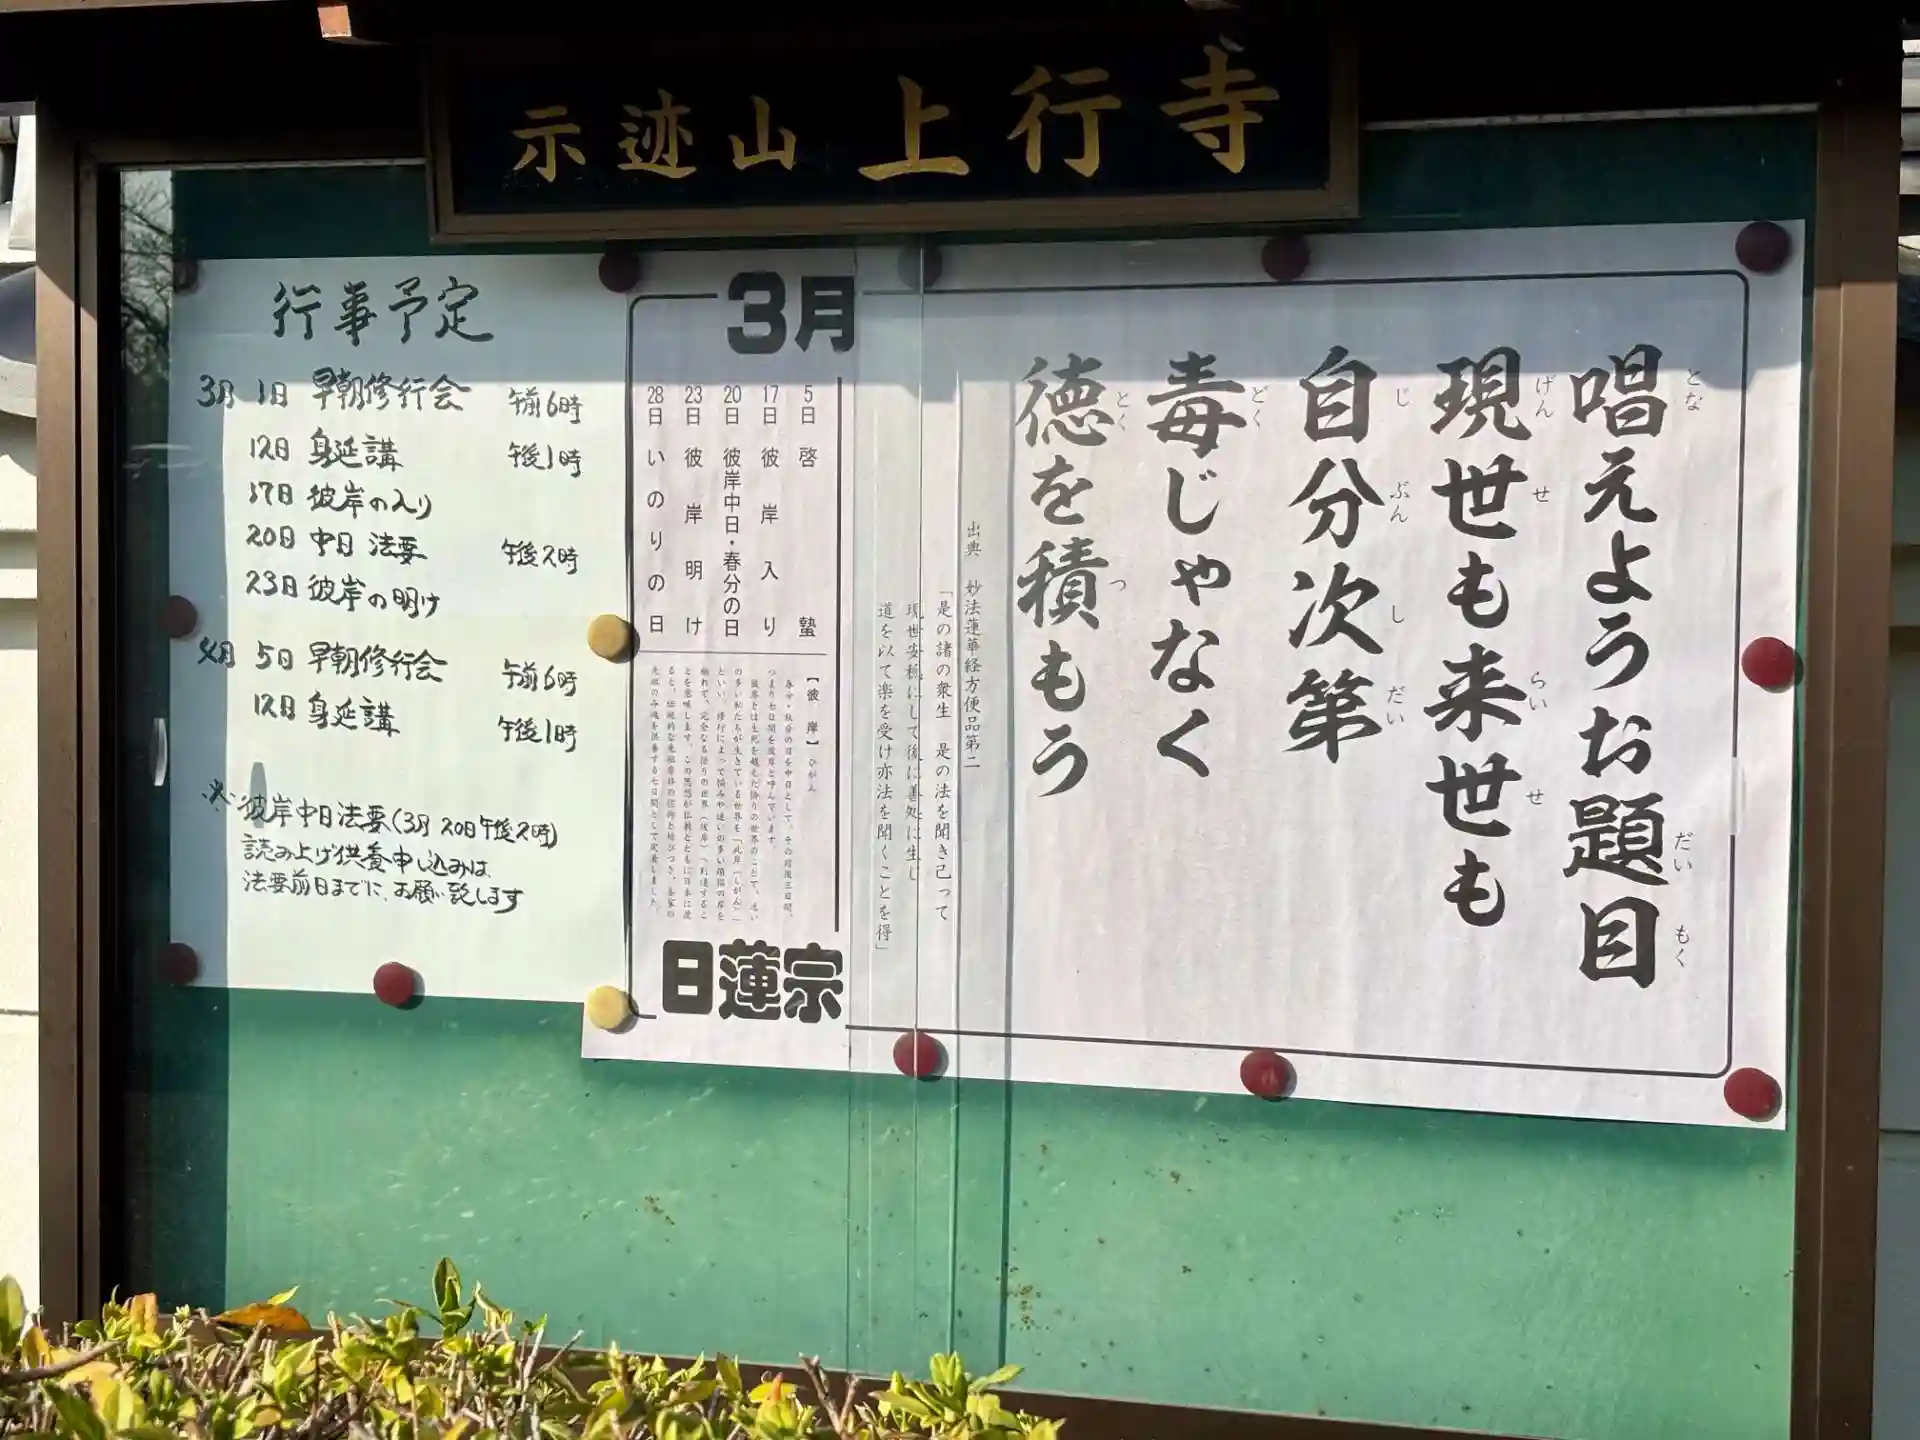 示迹山 上行寺
唱えようお題目
現世も来世も
自分次第
毒じゃなく
徳を積もう
出典 妙法蓮華経方便品第二
「是の諸の衆生 是の法を聞き己って
現世安穏にして後に善処に生じ
道を以て楽を受け亦法を聞くことを得」
3月
5日 啓蟄
17日 彼岸入り
20日 彼岸中日・春分の日
23日 彼岸明け
28日 いのりの日
【彼岸】ひがん
春分・秋分の日を中日として、その前後三日間、
つまり七日間を彼岸と呼んでいます。
日蓮宗
行事予定
3月 1日 早朝修行会 午前6時
12日 身延講 午後1時
17日 彼岸の入り
20日 中日 法要 午後2時
23日 彼岸の明け
4月 5日 早朝修行会 午前6時
12日 身延講 午後1時
※彼岸中日法要(3月20日午後2時)
読み上げ供養申し込みは、
法要前日までに、お願い致します